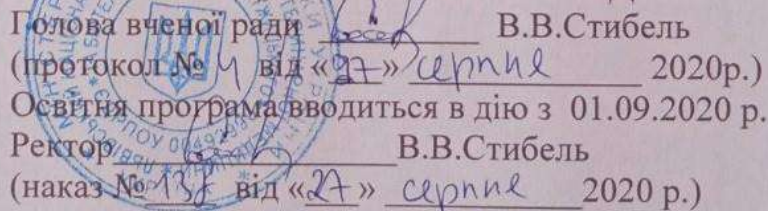 Голова вченої ради В.В.Стибель
(протокол № 4 від «27» серпня 2020р.)
Освітня програма вводиться в дію з 01.09.2020 р.
Ректор В.В.Стибель
(наказ № від «27» серпня 2020 р.)